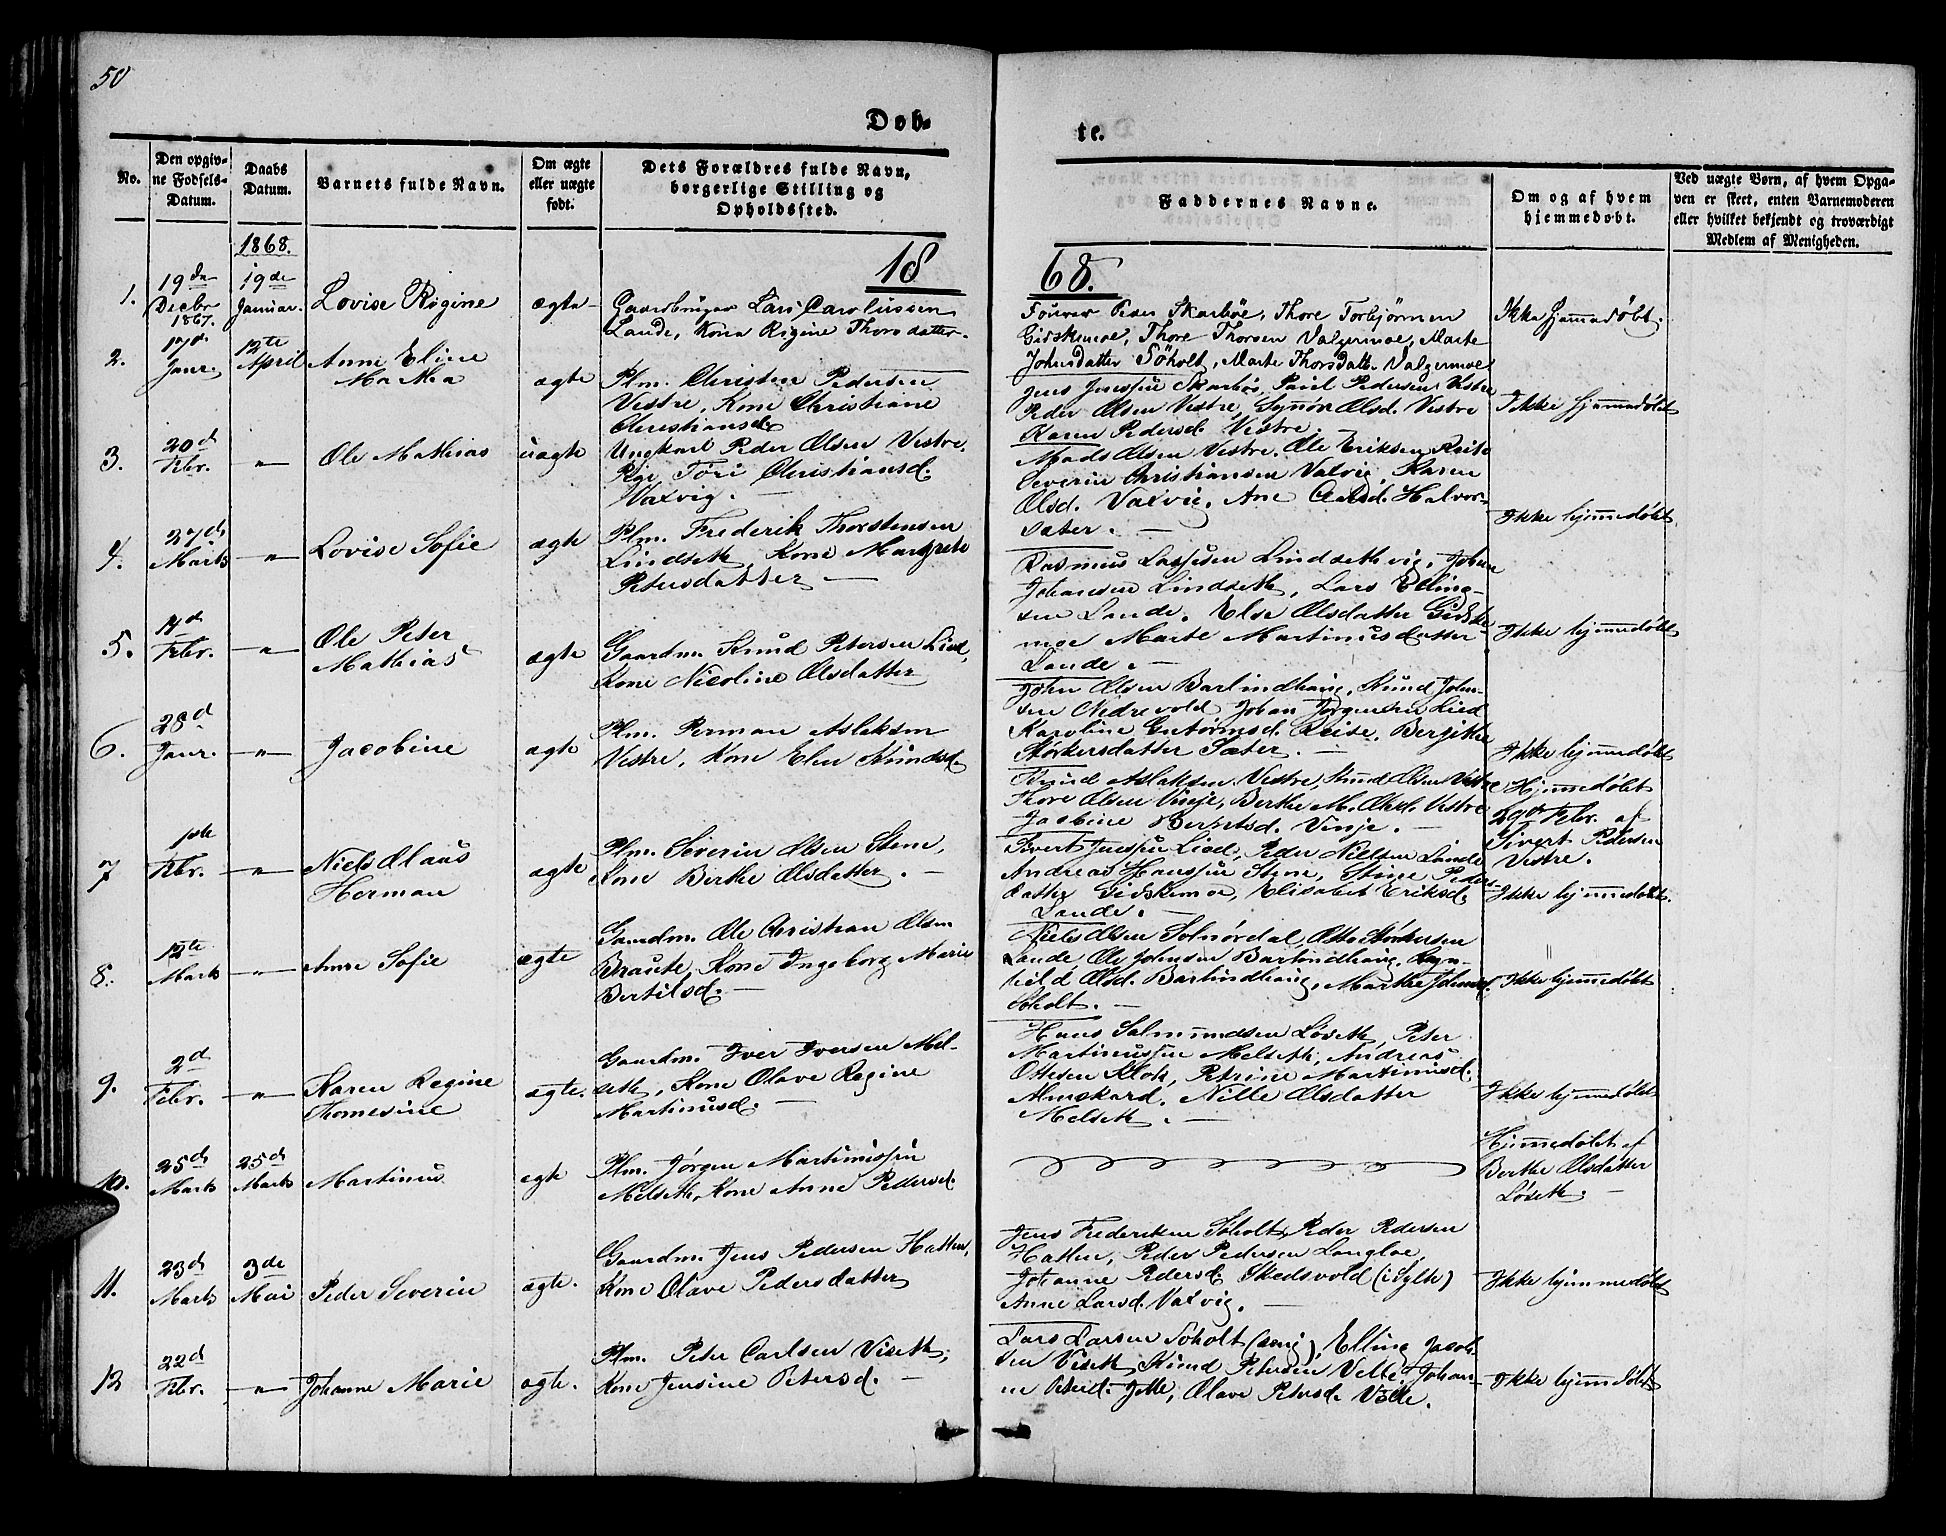 50
Døb-
te.
No.
Den opgiv-
ne Fødsels-
Datum.
Daabs
Datum.
Barnets fulde Navn.
Om ægte
eller uægte
født.
Dets Forældres fulde Navn,
borgerlige Stilling og
Opholdssted.
Faddernes Navne.
Om og af hvem
hjemmedøbt.
Ved uægte Børn, af hvem Opga-
ven er skeet, enten Barnemoderen
eller hvilket bekjendt og troværdigt
Medlem af Menigheden.
1868.
18
68.
1.
19de
Decbr
1867.
19de
Januar.
Lovise Regine
ægte
Gaardbruger Lars Carolussen
Lande, Kone Regine Thorsdatter
Peder Skarbøe, Thore Torbjörnsen
Gidskemoe, Thore Thorsen Valgermoe, Marte
Johnsdatter Söholt, Marte Thorsdatt. Valgermoe
Ikke hjemmedøbt.
2.
17d
Janr.
12te
April
Anne Eline
Mathea
ægte
Plm. Christen Pedersen
Vestre, Kone Christiane
Christiansd.
Jens Jensen Skarbös, Paul Pedersen Vestre
Peder Olsen Vestre, Synöve Olsd. Vestre
Karen Pedersd. Vestre.
Ikke hjemmedøbt
3.
20d
Febr.
-"-
Ole Mathias
uægte
Ungkarl Peder Olsen Vestre.
Pige Töri Christiansd.
Vaxvig.
Mads Olsen Vestre. Ole Eriksen
Severin Christiansen Vaxvig, Karen
Olsd. Vaxvig, Ane Halvor-
sæter.
Ikke hjemmedøbt
4.
27d
Marts
-"-
Lovise Sofie
ægte
Plm. Frederik Thorstensen
Lindseth, Kone Margrete
Petersdatter
Rasmus Lassesen Lindsethvig, Johan
Johansen Lindseth, Lars Elling-
sen Lande. Else Olsdatter Gidske-
moe Marte Martinusdatter
Lande.
Ikke hjemmedøbt
5.
14d
Febr.
-"-
Ole Peter
Mathias
ægte
Gaardm. Knud Petersen Lied,
Kone Nicoline Olsdatter
John Olsen Barlindhaug, Knud John-
sen Nedrevold Johan Jörgensen Lied
Karoline Gutormsd. Reise. Bergitte
Störkersdatter Sæter.
Ikke hjemmedøbt
6.
28d
Janr.
-"-
Jacobine
ægte
Plm. Perman Aslaksen
Vestre, Kone Elen Knudsd.
Knud Aslaksen Vestre, Knud Olsen Vestre
Thore Olsen Vinje, Berthe M. Olsd. Vestre
Jacobine Berntsd. Vinje.
Hjemmedøbt
29de Febr. af
Sivert Pedersen
Vestre.
7
1ste
Febr.
-"-
Niels Claus
Herman
ægte
Plm. Severin Olsen Stene,
Kone Berthe Olsdatter.
Sivert Jensen Lied, Peder Nielsen Lande
Andreas Hanssen Stene, Stine Peders-
datter Gidskemoe, Elisabet Eriksd.
Lande.
Ikke hjemmedøbt.
8.
12te
Marts
-"-
Anne Sofie
ægte
Gaardm. Ole Christian Olsen
Braute, Kone Ingeborg Marie
Bertilsd.
Niels Olsen Solnördal, Otto Störkersen
Lande Ole Johnsen Barlindhaug, Ragn-
hild Olsd. Barlindhaug, Marthe Johnsd.
Söholt.
Ikke hjemmedøbt
9.
2d
Febr.
-"-
Karen Regine
Thomesine
ægte.
Gaardm. Iver Iversen Mel-
seth, Kone Olave Regine
Martinusd.
Hans Salmundsen Løseth, Peter
Martinussen Melseth, Andreas
Ottesen Klok, Petrine Martinusd.
Almeskard. Nille Olsdatter
Melseth.
Ikke hjemmedøbt
10.
25d
Marts
25d
Marts
Martinus
ægte
Plm. Jörgen Martinussen
Melseth, Kone Anne Pedersd.
Hjemmedøbt af
Berthe Olsdatter
Løseth.
11.
23d
Marts
3de
Mai
Peder Severin
ægte.
Gaardm. Jens Pedersen Hatlen,
Kone Olave Pedersdatter
Jens Frederiksen Söholt, Peder Pedersen
Hatlen, Peder Pedersen Langloe,
Johanne Pedersd. Skedsvold (i Sylte)
Anne Larsd. Vaxvig.
Ikke hjemmedøbt
12
22d
Febr.
-"-
Johanne Marie
ægte.
Plm. Peter Carlsen Viseth,
Kone Jensine Petersd.
Lars Larsen Söholt (sevig), Elling Jacob-
sen Viseth, Knud Petersen Velle, Johan-
ne Velle, Olave Petersd. Velle.
Ikke hjemmedøbt